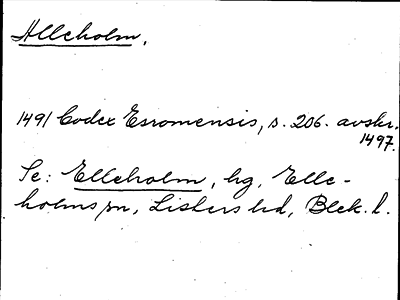 Alleholm.
1491 Codex Esromensis, s. 206. avskr.
1497.
Se: Elleholm, hg, Elle-
holms sn, Listers hd, Blek. l.